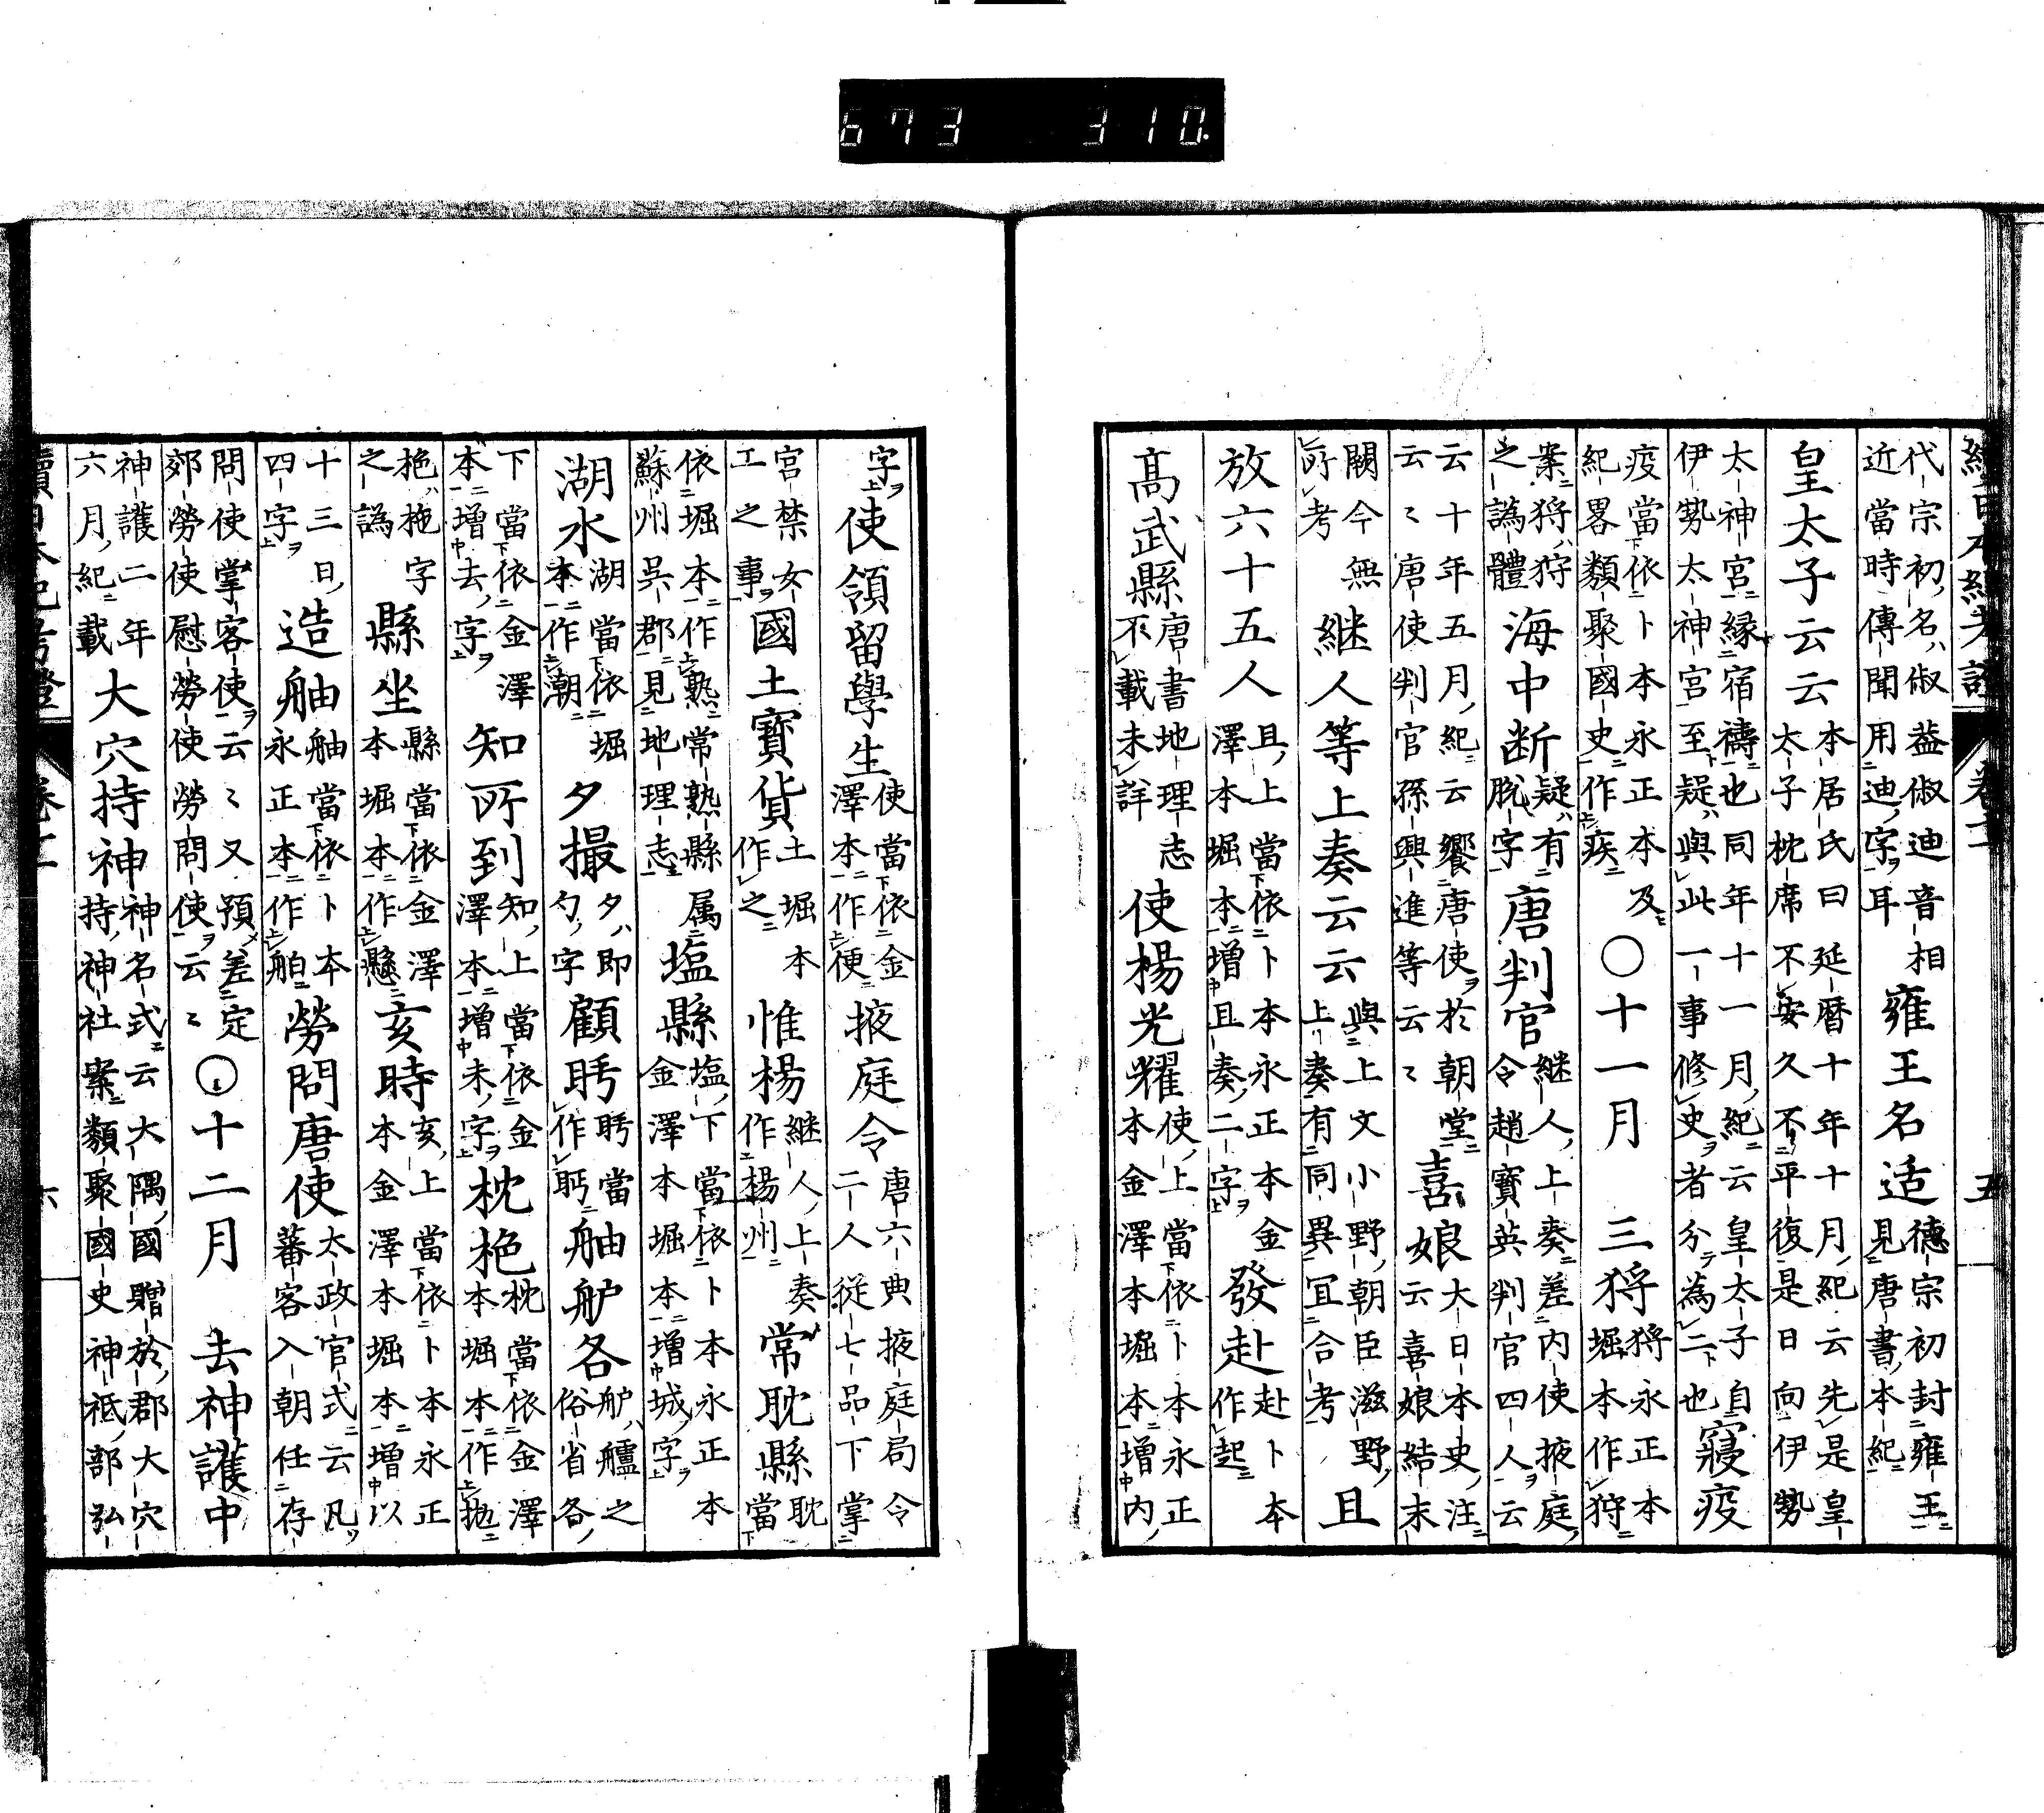 673 310
續日本紀考證 卷十一 五
代宗初名俶蓋俶迪音相
近當時傳聞用迪字耳
雍王名适
德宗初封雍王
見唐書本紀
皇太子云云
本居氏曰延暦十年十月紀云先是皇
太子枕席不安久不平復是日向伊勢
太神宮縁宿禱也同年十一月紀云皇太子自
伊勢太神宮至疑與此一事修史者分為二也
寢疫
疫當依卜本永正本及
紀畧類聚國史作疾
〇十一月 三㹨
㹨永正本
堀本作狩
案㹨狩
之譌體
海中断
疑有
脱字
唐判官
継人上奏差内使掖庭
令趙寶英判官四人云
云十年五月紀云饗唐使於朝堂
云〻唐使判官孫興進等云〻
喜娘
大日本史注
云喜娘結末
闕今無
所考
継人等上奏云云
與上文小野朝臣滋野
上奏有同異宜合考
且
放六十五人
且上當依卜本永正本金
澤本堀本増且奏二字
發赴
赴卜本
作起
髙武縣
唐書地理志
不載未詳
使楊光耀
使上當依卜本永正
本金澤本堀本増内
字
使領留學生
使當依金
澤本作便
掖庭令
唐六典掖庭局令
二人從七品下掌
宮禁女
工之事
國土寳貨
土堀本
作之
惟楊
継人上奏
作楊州
常耽縣
耽
當
依堀本作熟常熟縣属
蘇州呉郡見地理志
塩縣
塩下當依卜本永正本
金澤本堀本増城字
湖水
湖當依堀
本作潮
夕撮
夕即
勺字
顧眄
眄當
作眄
舳舮各
舮艫之
俗省各
下當依金澤
本増去字
知所到
知上當依金
澤本増未字
枕栬
枕當依金澤
本堀本作拋
栬拖字
之譌
縣坐
縣當依金澤
本堀本作懸
亥時
亥上當依卜本永正
本金澤本堀本増以
十三日
四字
造舳
舳當依卜本
永正本作舶
勞問唐使
太政官式云凡
蕃客入朝任存
問使掌客使云〻又預差定
郊勞使慰勞使勞問使云〻
〇十二月 去神護中
神護二年
六月紀載
大穴持神
神名式云大隅國贈於郡大穴
持神社案類聚國史神祇部弘
續日本紀考證 卷十一 六